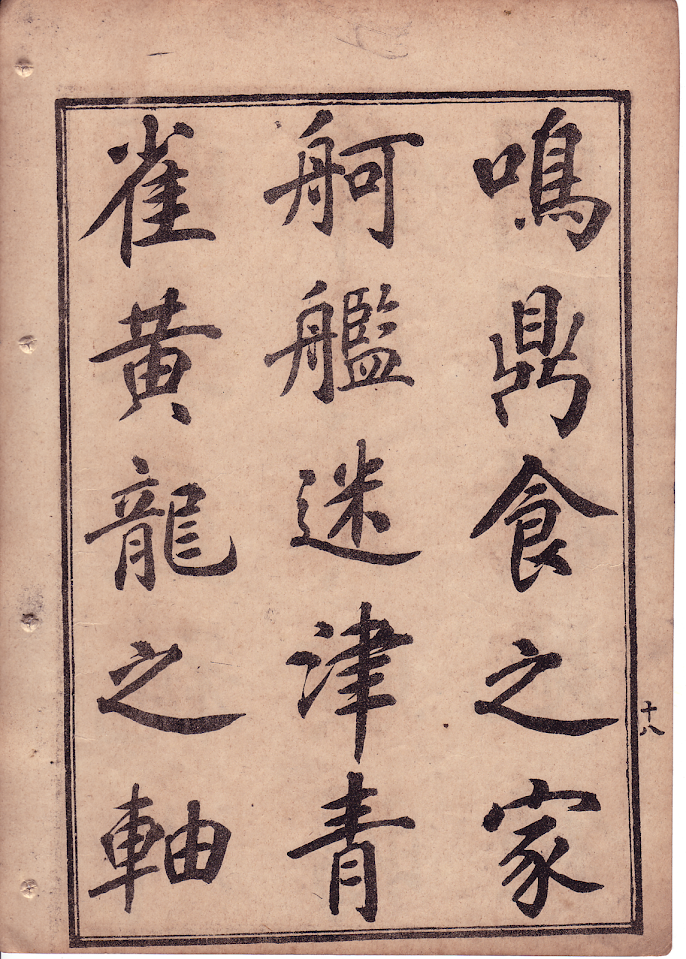 鳴鼎食之家
舸艦迷津青
雀黄龍之軸
十八